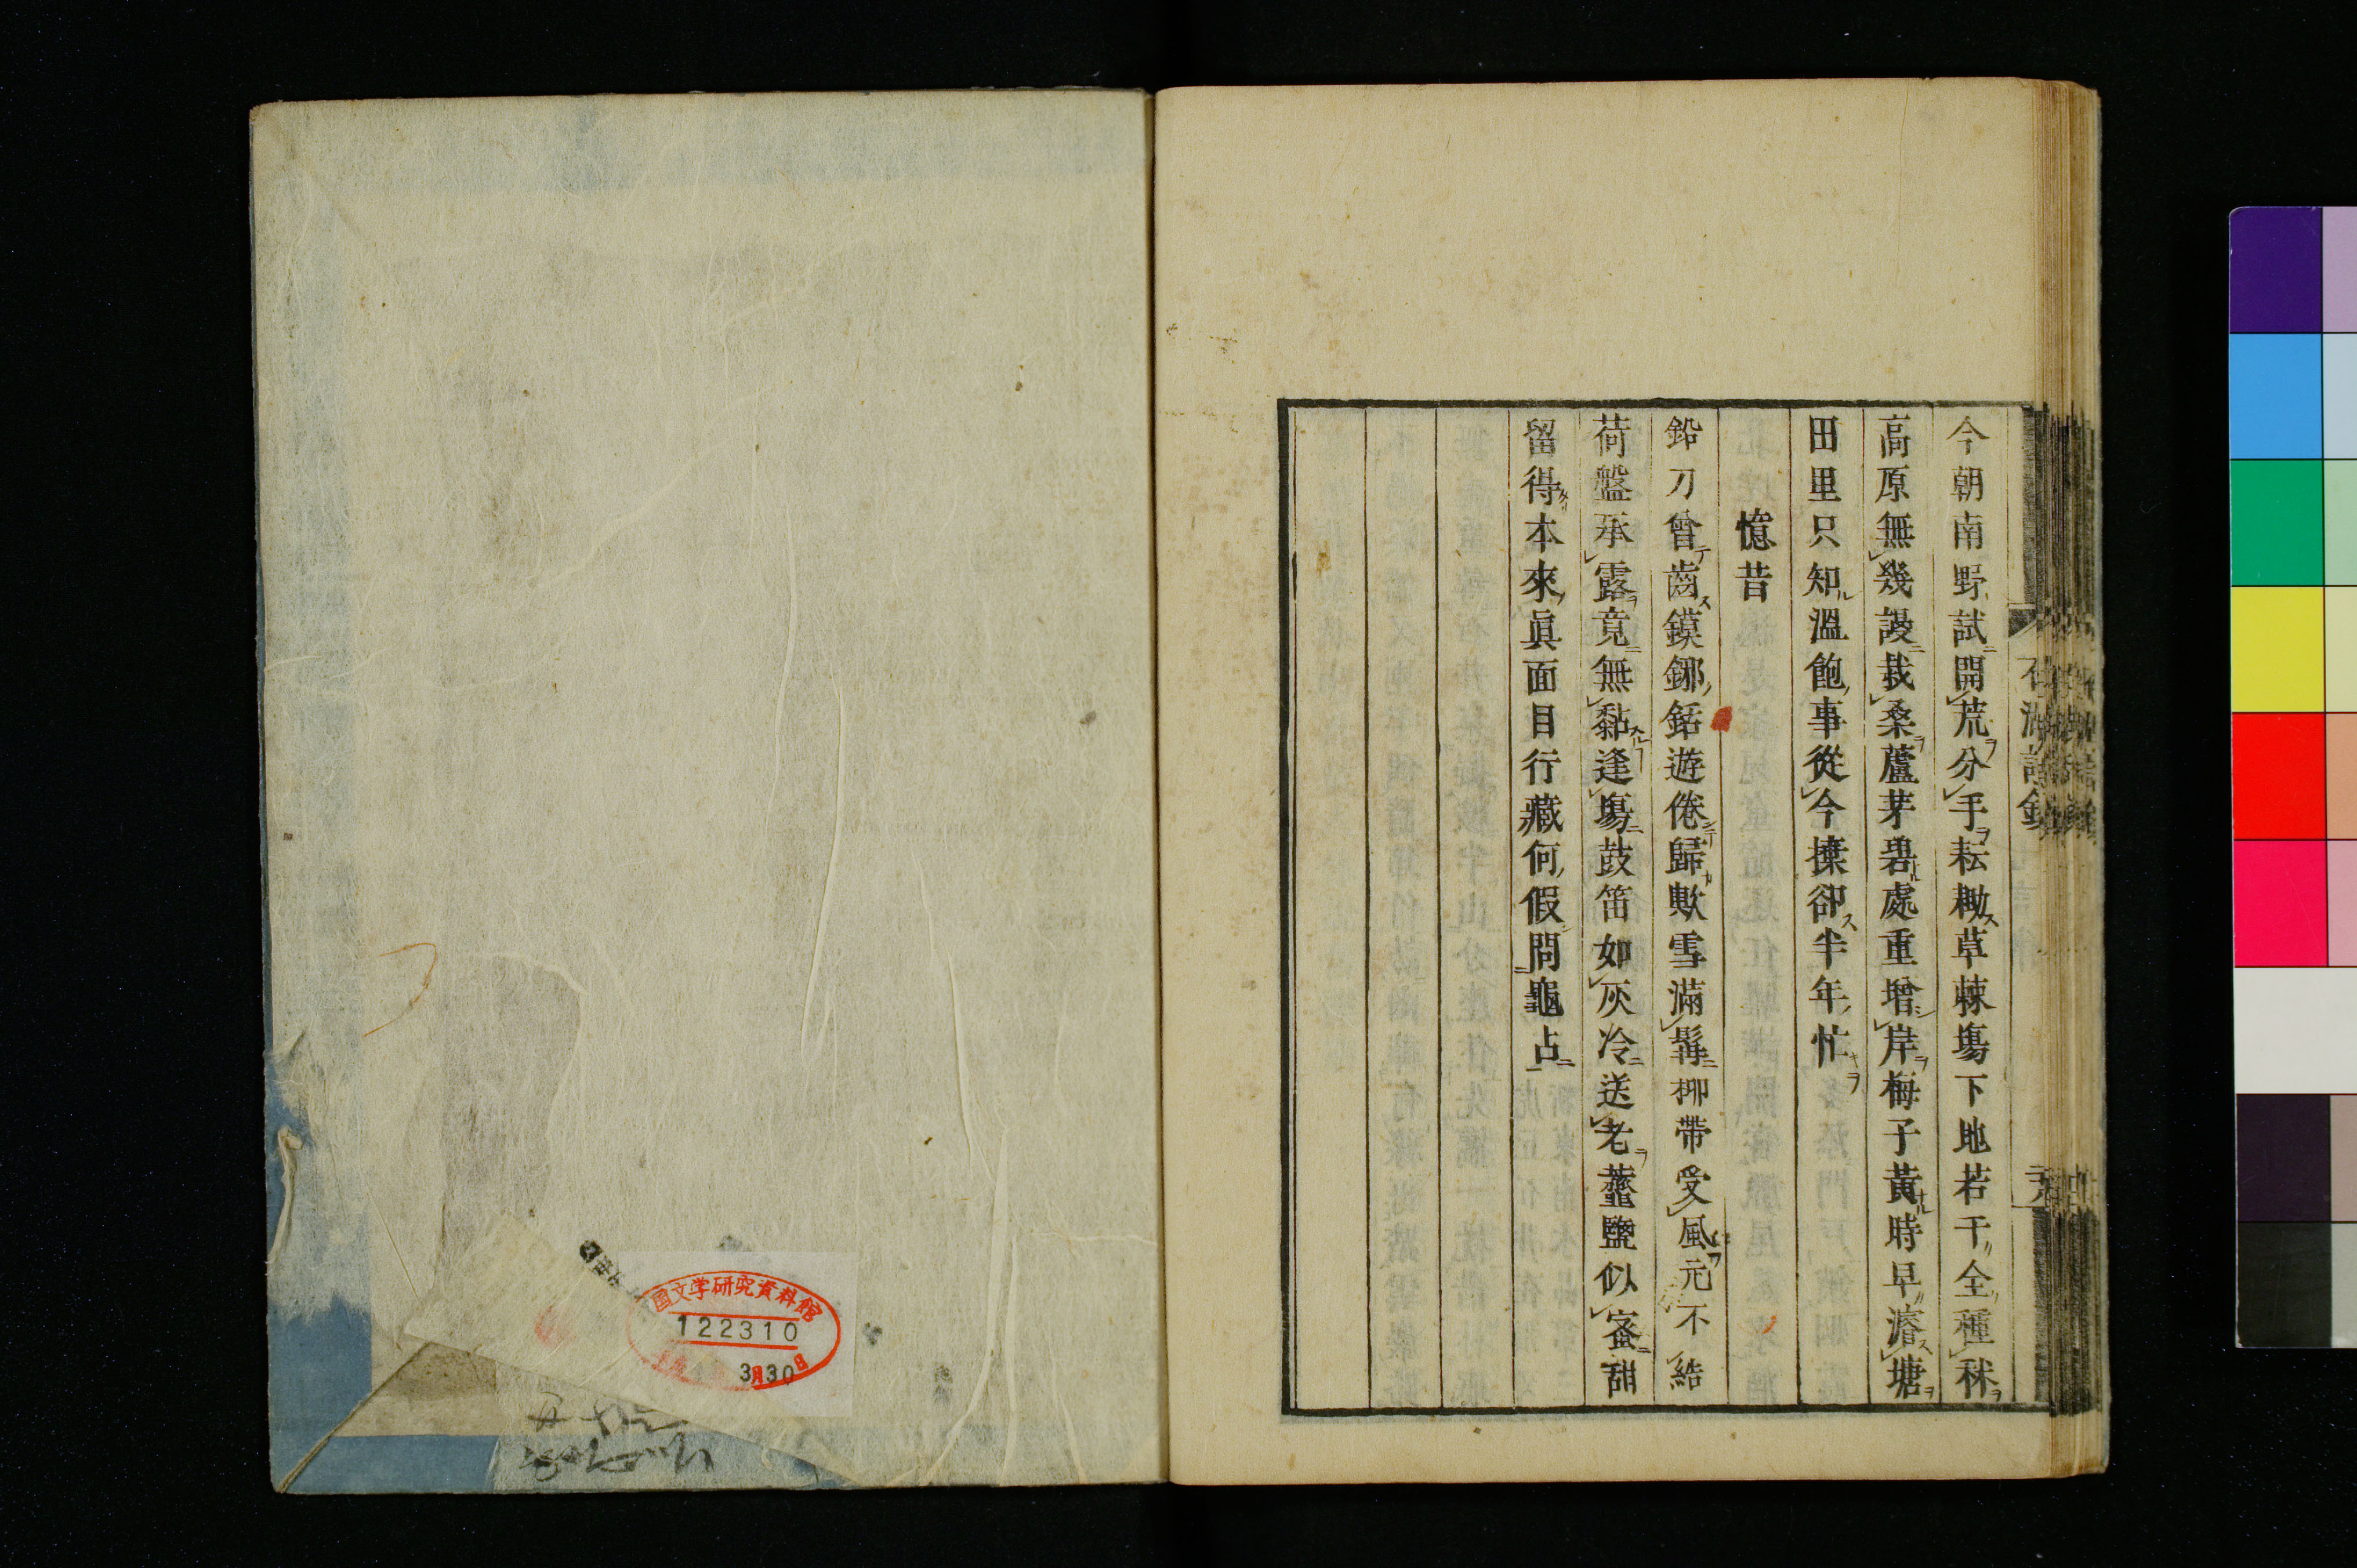 今朝南野試開荒分手耘鋤草棘塲下地若干全種秫
高原無幾謾栽桑蘆茅碧處重增岸梅子黃時早濬塘
田里只知溫飽事從今擽卻半年忙
憶昔
鉛刀曾齒鏌鎁銛遊倦歸歟雪滿髯柳帶受風元不結
荷盤承露竟無黏逢塲鼓笛如灰冷送老虀鹽似蜜甜
留得本來眞面目行藏何假問龜占
石湖詩鈔
國文学研究資料館
122310
3月30日